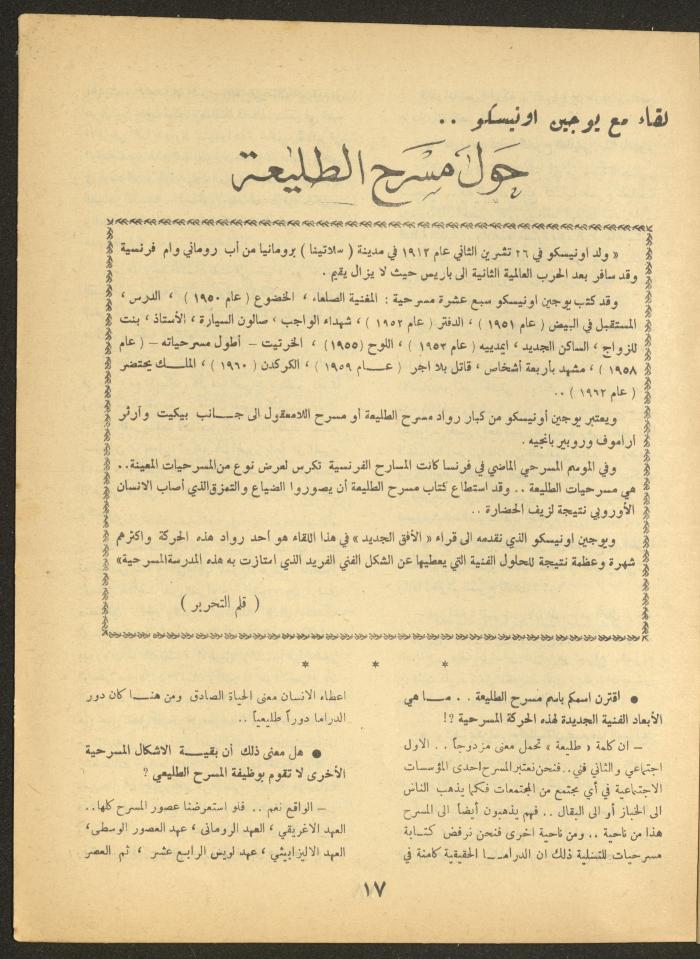 لقاء مع يوجين اونيسكو ..
حول مسرح الطليعة
« ولد اونيسكو في ٢٦ تشرين الثاني عام ١٩١٢ في مدينة ( سلاتينا ) برومانيا من أب روماني وام فرنسية
وقد سافر بعد الحرب العالمية الثانية الى باريس حيث لا يزال يقيم .
وقد كتب يوجين اونيسكو سبع عشرة مسرحية : المغنية الصلعاء ، الخضوع ( عام ١٩٥٠ ) ، الدرس ،
المستقبل في البيض ( عام ١٩٥١ ) ، الدفتر ( عام ١٩٥٢ ) ، شهداء الواجب ، صالون السيارة ، الأستاذ ، بنت
للزواج ، الساكن الجديد ، ايمدييه ( عام ١٩٥٣ ) ، اللوح (١٩٥٥) ، الخرتيت - أطول مسرحياته - ( عام
١٩٥٨ ) ، مشهد بأربعة أشخاص ، قاتل بلا اجر ( عـام ١٩٥٩ ) ، الكركدن ( ١٩٦٠ ) ، الملـك يحتضر
( عام ١٩٦٢ ) ..
ويعتبر يوجين أونيسكو من كبار رواد مسرح الطليعة أو مسرح اللامعقول الى جـانب بيكيت وآرثر
اراموف وروبير بانجيه .
وفي الموسم المسرحي الماضي في فرنسا كانت المسارح الفرنسية تكرس لعرض نوع من المسرحيات المعينة..
هي مسرحيات الطليعة .. وقد استطاع كتاب مسرح الطليعة أن يصوروا الضياع والتمزق الذي أصاب الانسان
الأوروبي نتيجة لزيف الحضارة ..
ويوجين اونيسكو الذي نقدمه الى قراء « الأفق الجديد » في هذا اللقاء هو أحد رواد هذه الحركة واكثرهم
شهرة وعظمة نتيجة للحلول الفنية التي يعطيها عن الشكل الفني الفريد الذي امتازت به هذه المدرسة المسرحية»
( قلم التحرير )
* * *
● اقترن اسمكم باسم مسرح الطليعة .. مـا هي
الأبعاد الفنية الجديدة لهذه الحركة المسرحية ؟!
- ان كلمة « طليعة » تحمل معنى مزدوجاً .. الاول
اجتماعي والثاني فني.. فنحن نعتبر المسرح احدى المؤسسات
الاجتماعية في أي مجتمع من المجتمعات فكما يذهب الناس
الى الخباز أو الى البقال .. فهم يذهبون أيضاً الى المسرح
هذا من ناحية .. ومن ناحية اخرى فنحن نرفض كتـابة
مسرحيات للتسلية ذلك ان الدرامـا الحقيقية كامنة في
اعطاء الانسان معنى الحياة الصادق ومن هنـا كان دور
الدراما دوراً طليعياً ..
● هل معنى ذلك أن بقيـة الاشكال المسرحية
الأخرى لا تقوم بوظيفة المسرح الطليعي ؟
- الواقع نعم .. فلو استعرضنا عصور المسرح كلها..
العهد الاغريقي ، العهد الروماني ، عهد العصور الوسطى،
العهد الاليزابيثي ، عهد لويس الرابع عشر ، ثم العصر
١٧